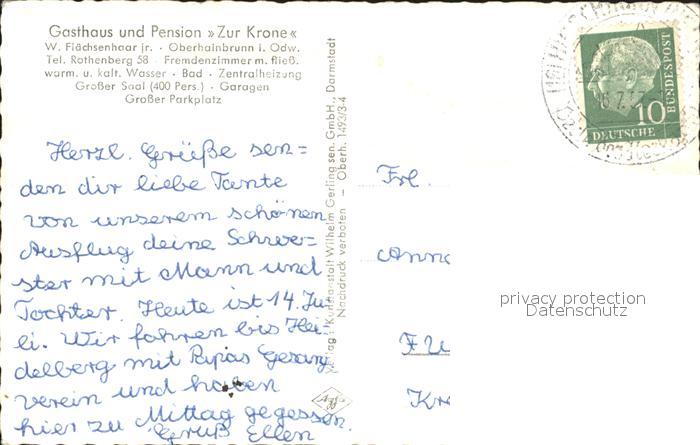 Gasthaus und Pension »Zur Krone«
W. Flächsenhaar jr. · Oberhainbrunn i. Odw.
Tel. Rothenberg 58 · Fremdenzimmer m. fließ.
warm. u. kalt. Wasser · Bad · Zentralheizung
Großer Saal (400 Pers.) · Garagen
Großer Parkplatz
Herzl. Grüße sen=
den dir liebe Tante
von unserem schönen
Ausflug deine Schwe=
ster mit Mann und
Tochter. Heute ist 14. Ju=
li. Wir fahren bis Hei=
delberg mit Papas Gesang
verein und haben
hier zu Mittag gegessen.
Gruß Ellen
Verlag: Kunstanstalt Wilhelm Gerling sen. GmbH., Darmstadt
Nachdruck verboten — Oberh. 1493/3-4
10
DEUTSCHE
BUNDESPOST
Frl.
Anna
Kr
privacy protection
Datenschutz